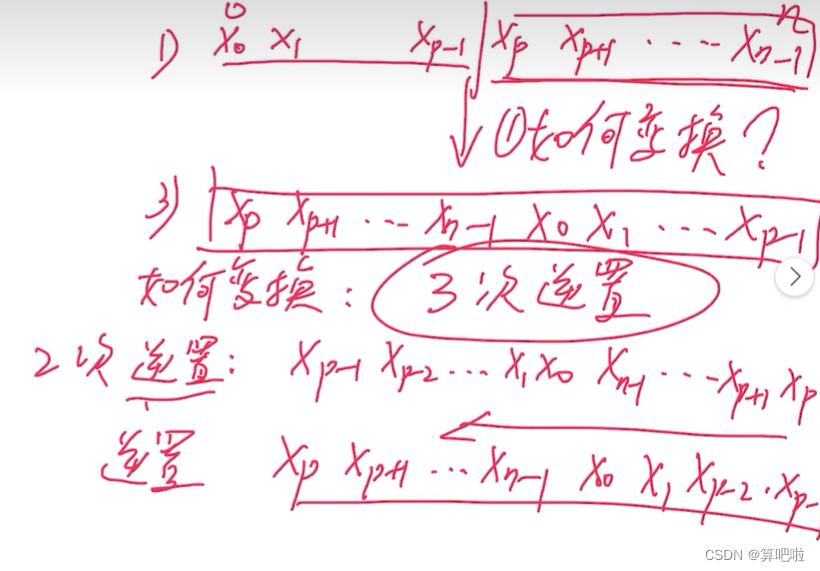 0 n
1) x₀ x₁ xₚ₋₁ xₚ xₚ₊₁ ···· xₙ₋₁
①如何变换？
3) xₚ xₚ₊₁ ··· xₙ₋₁ x₀ x₁ ··· xₚ₋₁
如何变换：3次逆置
2次逆置：xₚ₋₁ xₚ₋₂ ··· x₁ x₀ xₙ₋₁ ··· xₚ₊₁ xₚ
逆置 xₚ xₚ₊₁ ··· xₙ₋₁ x₀ x₁ xₚ₋₂ · xₚ₋
CSDN @算吧啦